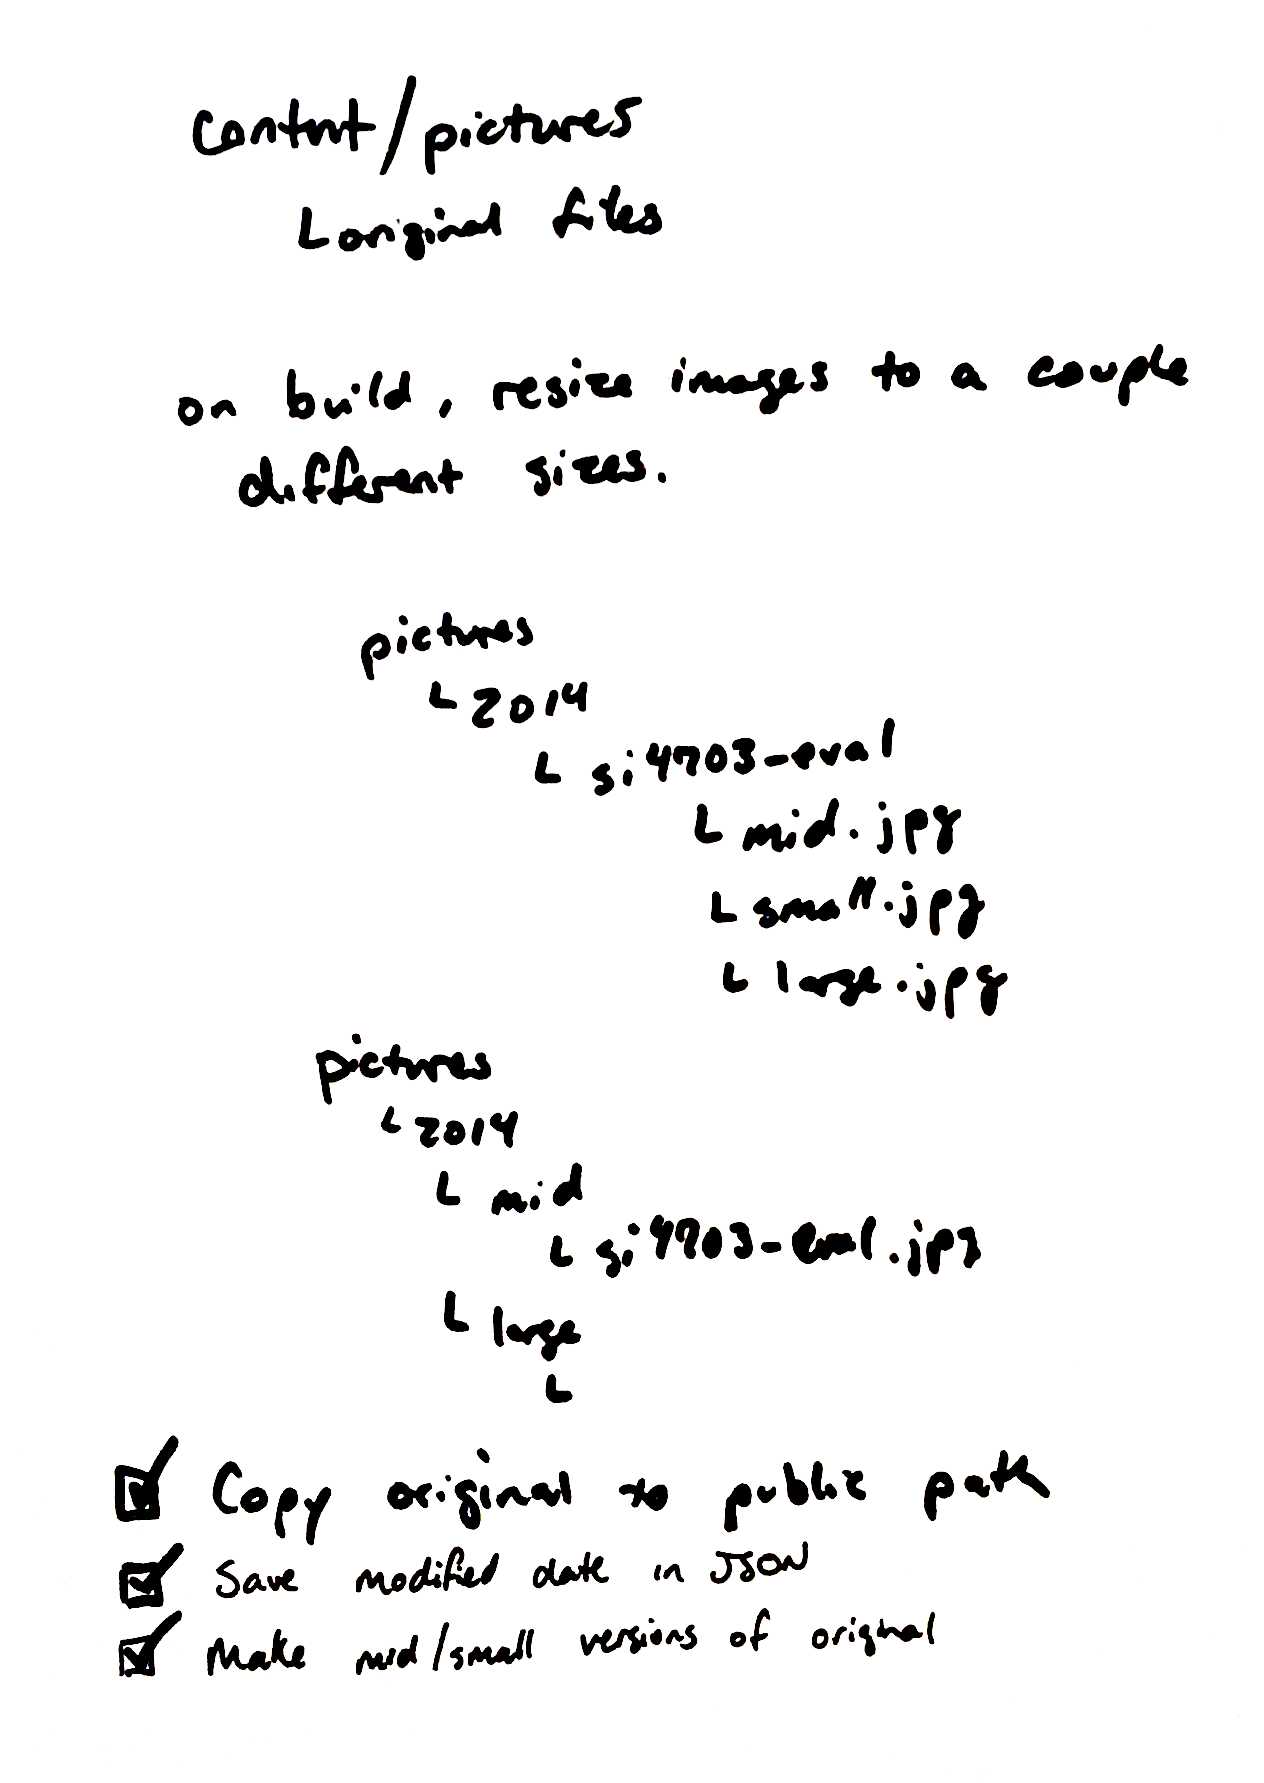 content/pictures
└ original files
on build, resize images to a couple
different sizes.
pictures
└ 2014
└ si4703-eval
└ mid.jpg
└ small.jpg
└ large.jpg
pictures
└ 2014
└ mid
└ si4703-eval.jpg
└ large
└
☑ Copy original to public path
☑ Save modified date in JSON
☑ Make mid/small versions of original